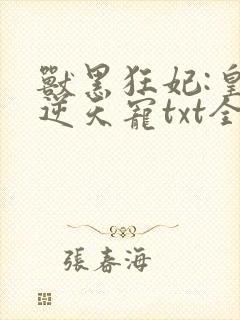 獸黑狂妃:皇
逆天寵txt全
張春海